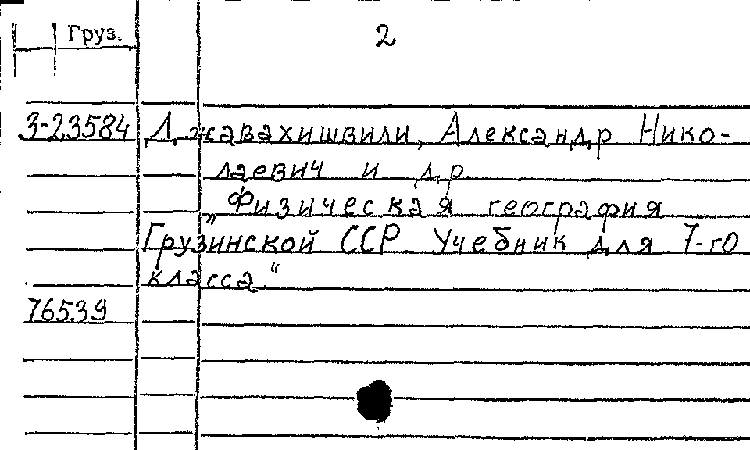 Груз.
2
3-23584 Джавахишвили, Александр Нико-
лаевич и др.
„Физическая география
Грузинской ССР. Учебник для 7-го
класса“
76539